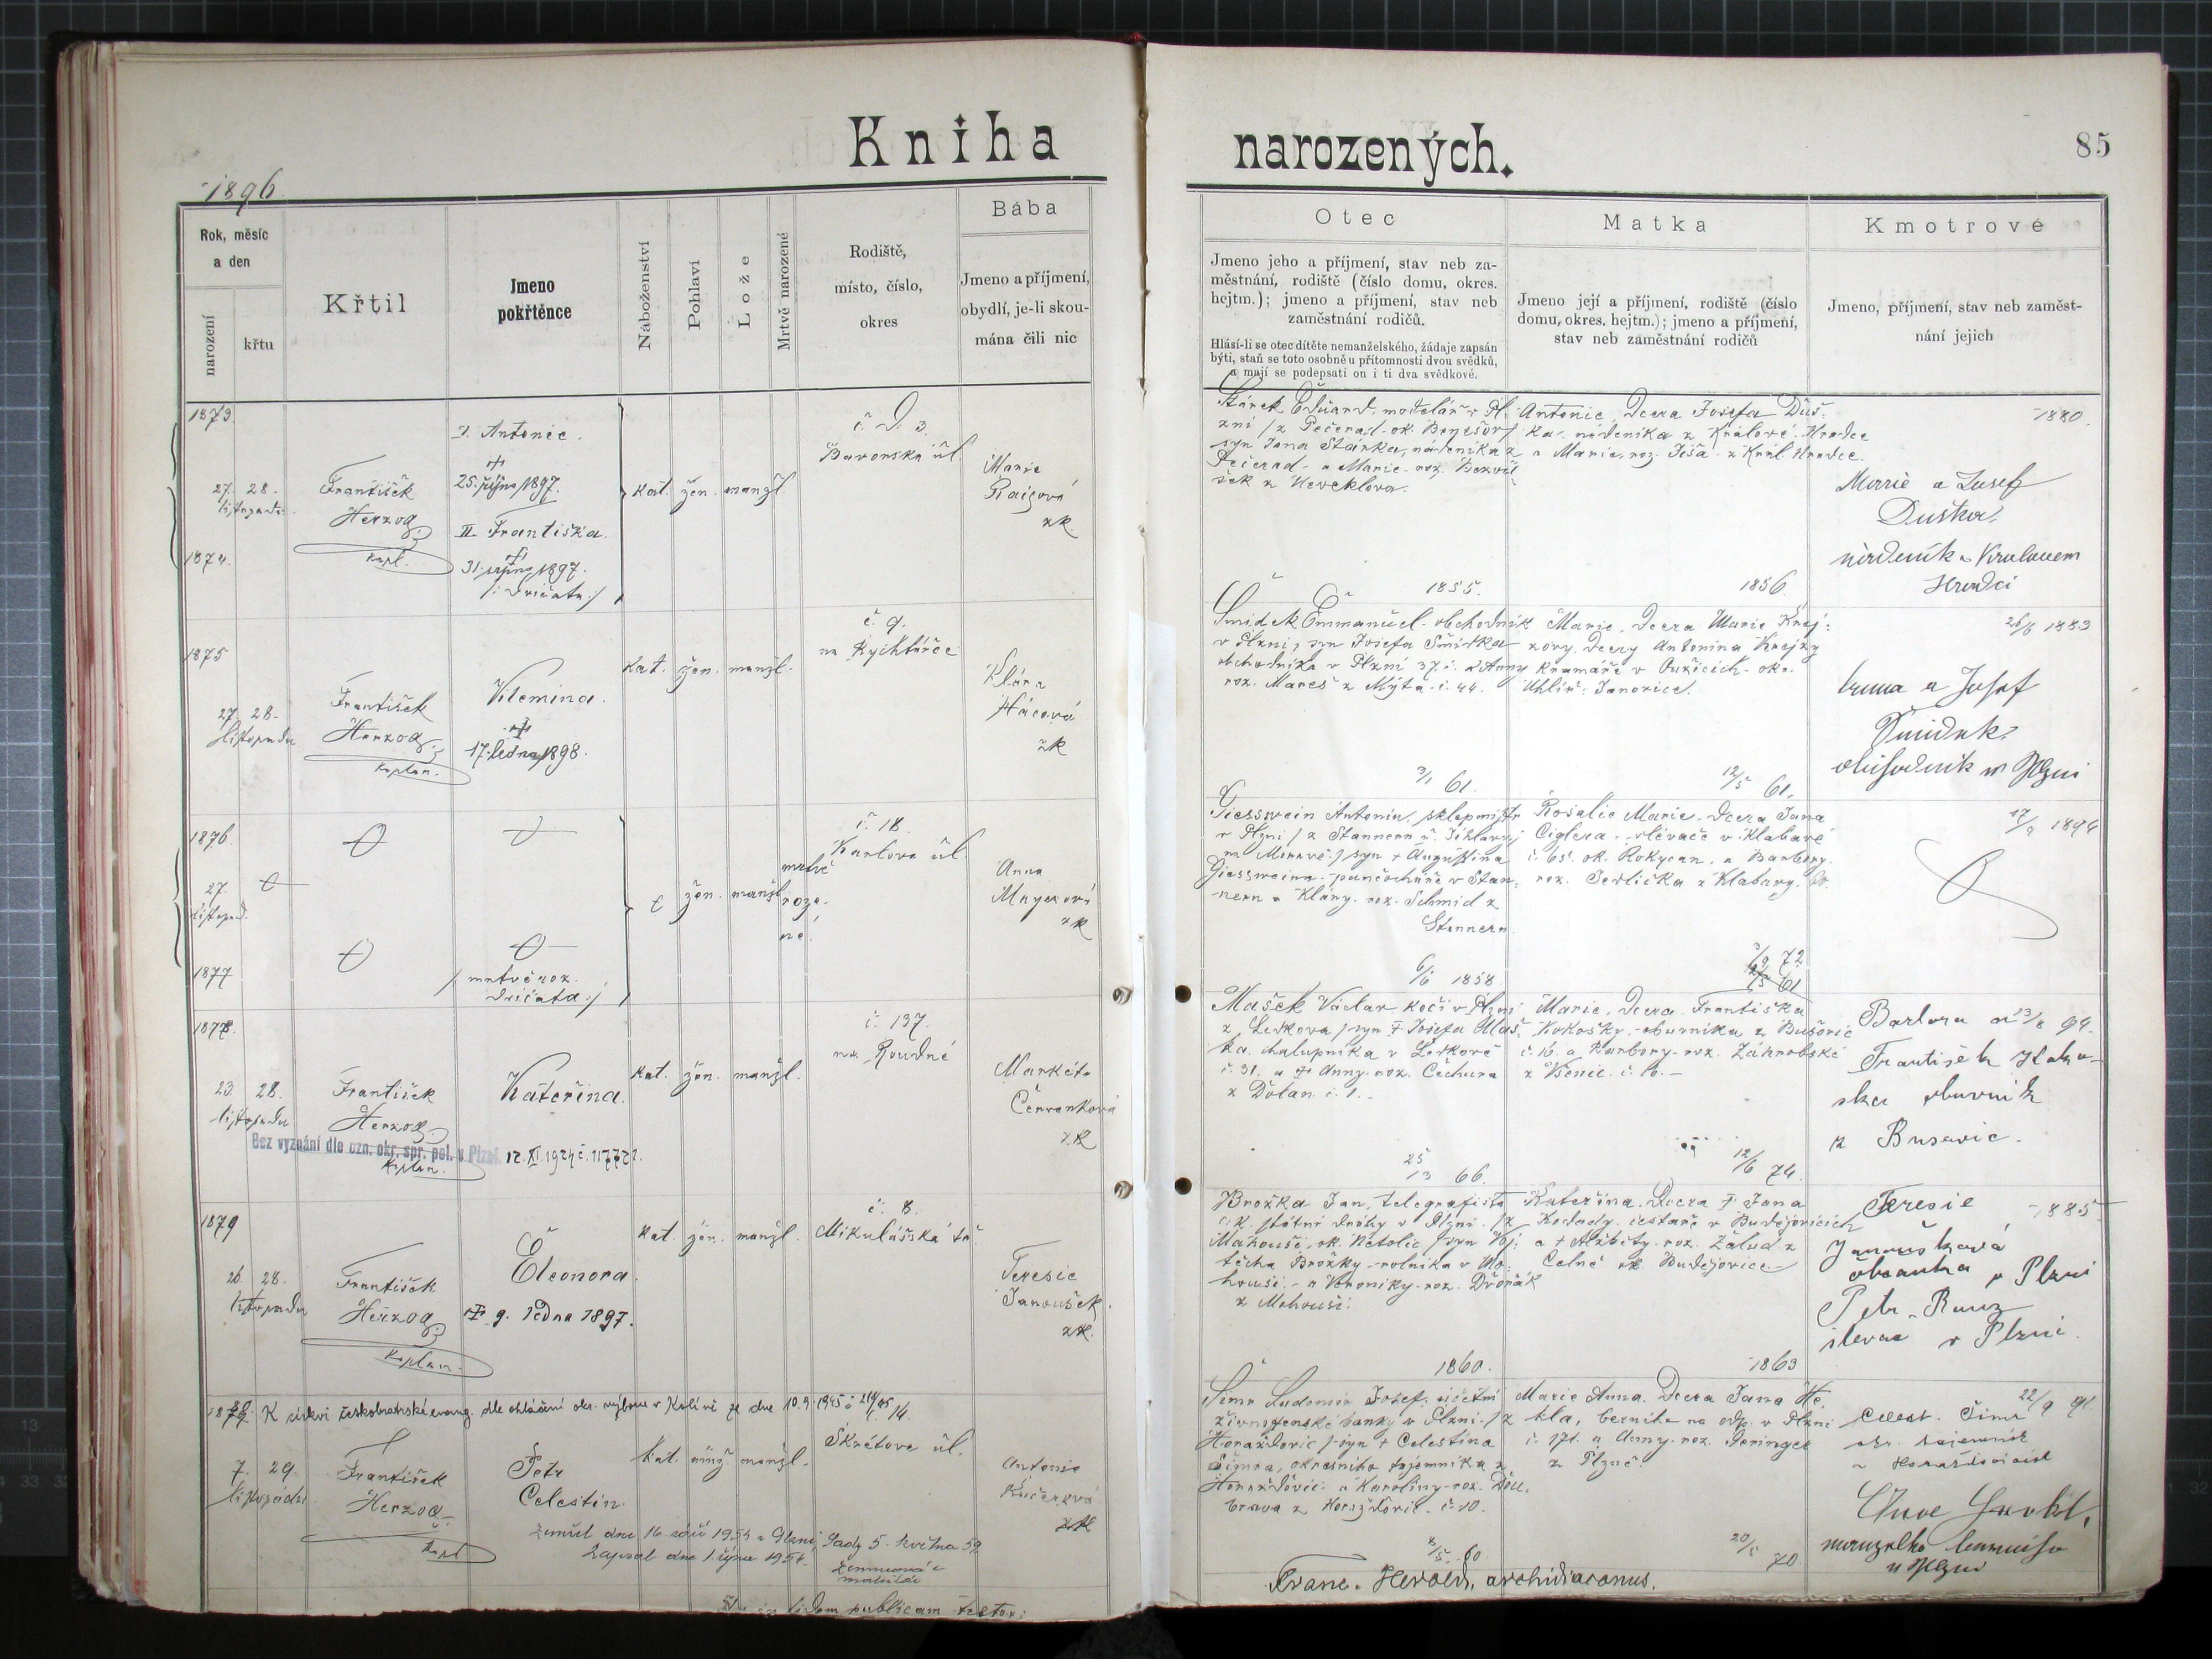 Kniha
narozených.
85
1896.
Rok, měsíc
a den
narození
křtu
Křtil
Jmeno
pokřtěnce
Náboženství
Pohlaví
Lože
Mrtvě narozené
Rodiště,
místo, číslo,
okres
Bába
Jmeno a příjmení,
obydlí, je-li skou-
mána čili nic
Otec
Jmeno jeho a příjmení, stav neb za-
městnání, rodiště (číslo domu, okres.
hejtm.); jmeno a příjmení, stav neb
zaměstnání rodičů.
Hlásí-li se otec dítěte nemanželského, žádaje zapsán
býti, staň se toto osobně u přítomnosti dvou svědků,
a mají se podepsati on i ti dva svědkové.
Matka
Jmeno její a příjmení, rodiště (číslo
domu, okres. hejtm.); jmeno a příjmení,
stav neb zaměstnání rodičů
Kmotrové
Jmeno, příjmení, stav neb zaměst-
nání jejich
1873
27. 28.
listopadu
1874
František
Herzog
kapl.
I. Antonie.
25. října 1897.
II. Františka.
31. srpna 1897.
/: dvičata :/
kat. žen. manžl.
č. D. 3
Bavorská úl.
Marie
Raisová
zk.
Stárek Eduard, modelář v Pl-
zni /z Pečerad ok. Benešov/
syn Jana Stárka, nádeníka z
Pečerad a Marie roz. Bezvě
šek z Neveklova.
1855.
Antonie, dcera Josefa Duš-
ka, nádeníka z Králové Hradce
a Marie, roz. Jíša z Král. Hradce.
1856
1880.
Marie a Josef
Duška,
nádeník v Královém
Hradci
1875
27. 28.
listopadu
František
Herzog
kaplan.
Vilemina.
17. ledna 1898.
kat. žen. manžl.
č. 9.
na Rychtářce
Klára
Hácová
zk
Šmidek Emmanuel obchodník
v Plzni, syn Josefa Šmidka
obchodníka v Plzni 37 č. a Anny
roz. Mareš z Mýta č. 44.
3/1 61.
Marie, dcera Marie Krej-
zovy, dcery Antonína Krejzy
kramáře v Ouňčicích ok.
Uhlíř. Janovice.
12/5 61.
26/6 1883
Emma a Josef
Šmidek
obchodník v Plzni
1876
27.
listopad.
1877
/ mrtvě roz.
dvičata :/
žen. manžl.
mrtvě
roze-
né.
č. 18.
Karlova úl.
Anna
Mayerová
zk
Giesswein Antonin, sklepmistr
v Plzni /z Stannern u Jihlavy
na Moravě/ syn + Augustina
Giessweina punčocháře v Stan-
nern a Kláry roz. Schmid z
Stannern
6/6 1858.
Rosalie Marie dcera Jana
Ciglera, slévače v Klabavě
č. 65. ok. Rokycan, a Barbory
roz. Jedlička z Klabavy.
3/9 72
61
17/9 1894
1878.
23. 28.
listopadu
František
Herzog
kaplan.
Kateřina.
Bez vyznání dle ozn. okr. spr. pol. v Plzni
12. XI. 1924 č. 117772.
kat. žen. manžl.
č. 137.
na Roudné
Markéta
Červenková
zk
Mašek Václav kočí v Plzni
z Ledkova /syn + Josefa Maš-
ka, chalupníka v Ledkově
č. 31. a + Anny roz. Čechura
z Dolan č. 1.
25/13 66.
Marie, dcera Františka
Kokošky, obuvníka z Bušovic
č. 16. a Barbory roz. Záhrobské
z Bušovic č. 16.
12/6 74.
Barbora a 13/8 94.
František Koko-
ška obuvník
z Bušovic.
1879
26. 28.
listopadu
František
Herzog
kaplan.
Eleonora.
9. ledna 1897.
kat. žen. manžl.
č. 8.
Mikulášská tř.
Teresie
Janoušek.
zk.
Brožka Jan, telegrafista
c.k. státní dráhy v Plzni /z
Mahouše, ok. Netolic /syn Voj-
těcha Brožky rolníka v Ma-
houši a Veroniky roz. Dvořák
z Mahouše.
1860.
Kateřina. Dcera + Jana
Kodady, cestáře v Budějovicích
a + Alžběty roz. Žalud z
Celné ok. Budějovice.
1863
1885
Teresie
Janoušková
občanka v Plzni
Petr Runz
slevač v Plzni.
1880. K církvi českobratrské evang. dle ohlášení okr. výboru v Kolíně ze dne 10.9.1945
7. 29.
listopadu
František
Herzog
kapl
Petr
Celestin.
zemřel dne 16. září 1954 v Plzni, Sady 5. května 59
Zapsal dne 1. října 1954.
kat. muž. manžl.
14
Škrétova úl.
Antonie
Kučerová
zk
Šimr Ludomír Josef, účetní
živnostenské banky v Plzni /z
Horažďovic /syn + Celestina
Šimra, okresního tajemníka z
Horažďovic a Karoliny roz. Dou-
brava z Horažďovic č. 10.
8/5 60
Marie Anna. Dcera Jana He-
kla, berníka na odp. v Plzni
č. 171. a Anny roz. Geringer
z Plzně.
20/5 70.
22/9 91.
Celest. Šimr
okr. tajemník
v Horažďovicích
manželka
v Plzni
In fidem publicam testor:
Franc. Herold, archidiaconus.